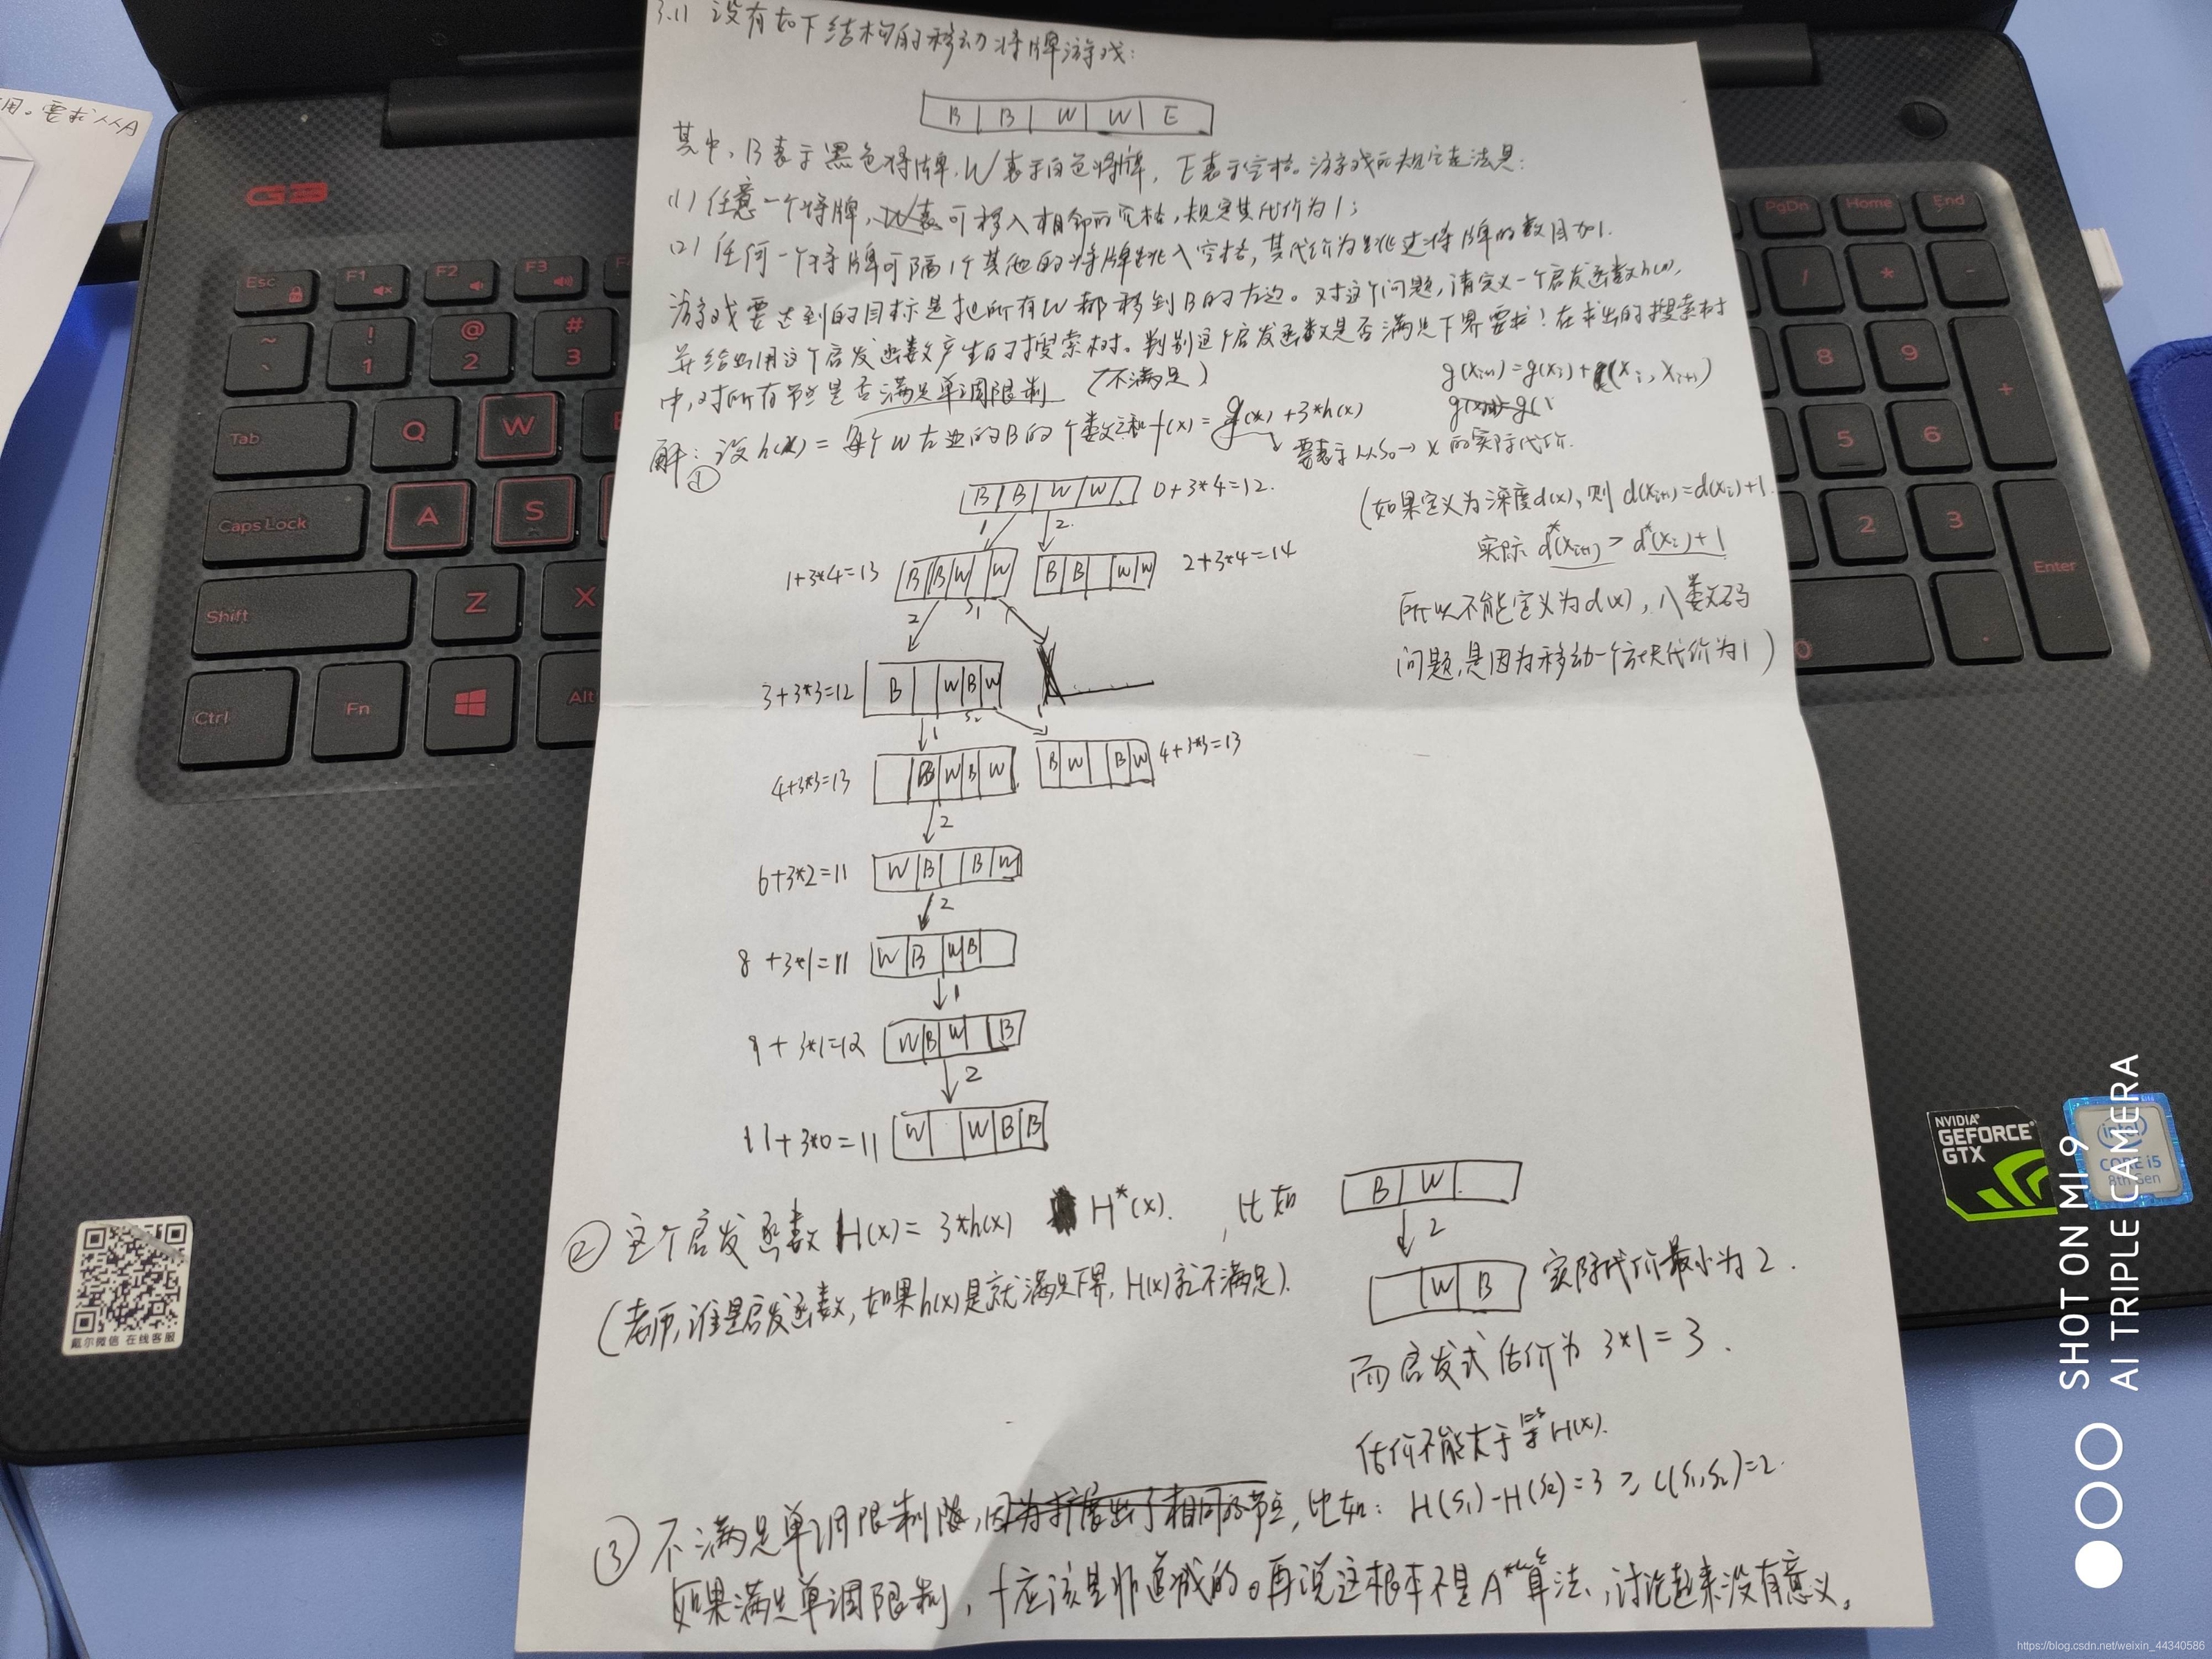 用。要求从A
3.11 设有如下结构的移动将牌游戏:
B B W W E
其中,B表示黑色将牌,W表示白色将牌,E表示空格。游戏的规定走法是:
(1) 任意一个将牌,可移入相邻的空格,规定其代价为1;
(2) 任何一个将牌可隔1个其他的将牌跳入空格,其代价为跳过将牌的数目加1.
游戏要达到的目标是把所有W都移到B的左边。对这个问题,请定义一个启发函数h(n),
并给出用这个启发函数产生的搜索树。判别这个启发函数是否满足下界要求!在求出的搜索树
中,对所有节点是否满足单调限制 (不满足)
g(xi+1)=g(xi)+c(xi, xi+1)
解:设h(x)=每个W左边的B的个数之和 f(x)=g(x)+3*h(x)
要表示从S0→x的实际代价.
①
B B W W 0+3*4=12.
1 2.
1+3*4=13 B B W W B B W W 2+3*4=14
S1
2 1
3+3*3=12 B W B W
S2
1 1
4+3*3=13 B W B W B W B W 4+3*3=13
2
6+3*2=11 W B B W
2
8+3*1=11 W B W B
1
9+3*1=12 W B W B
2
11+3*0=11 W W B B
(如果定义为深度d(x),则 d(xi+1)=d(xi)+1.
实际 d*(xi+1) > d*(xi)+1
所以不能定义为d(x),八数码
问题,是因为移动一个方块代价为1)
② 这个启发函数H(x)=3*h(x) H*(x). ,比如
(老师,谁是启发函数,如果h(x)是就满足下界,H(x)就不满足).
B W
2
W B 实际代价最小为2.
而启发式估价为 3*1=3.
估价不能大于 H(x).
③ 不满足单调限制,因为扩展出了相同的节点,比如: H(S1)-H(S2)=3 ≥ C(S1,S2)=2.
如果满足单调限制,f应该是非递减的。再说这根本不是A*算法,讨论起来没有意义。
G3
Esc F1 F2 F3
~ ! @ #
1 2 3
Tab Q W
Caps Lock A S
Shift Z X
Ctrl Fn Alt
PgDn Home End
/ * -
8 9 +
5 6
2 3
Enter
0 .
戴尔微信 在线客服
NVIDIA
GEFORCE
GTX
intel
CORE i5
8th Gen
SHOT ON MI 9
AI TRIPLE CAMERA
https://blog.csdn.net/weixin_44340586